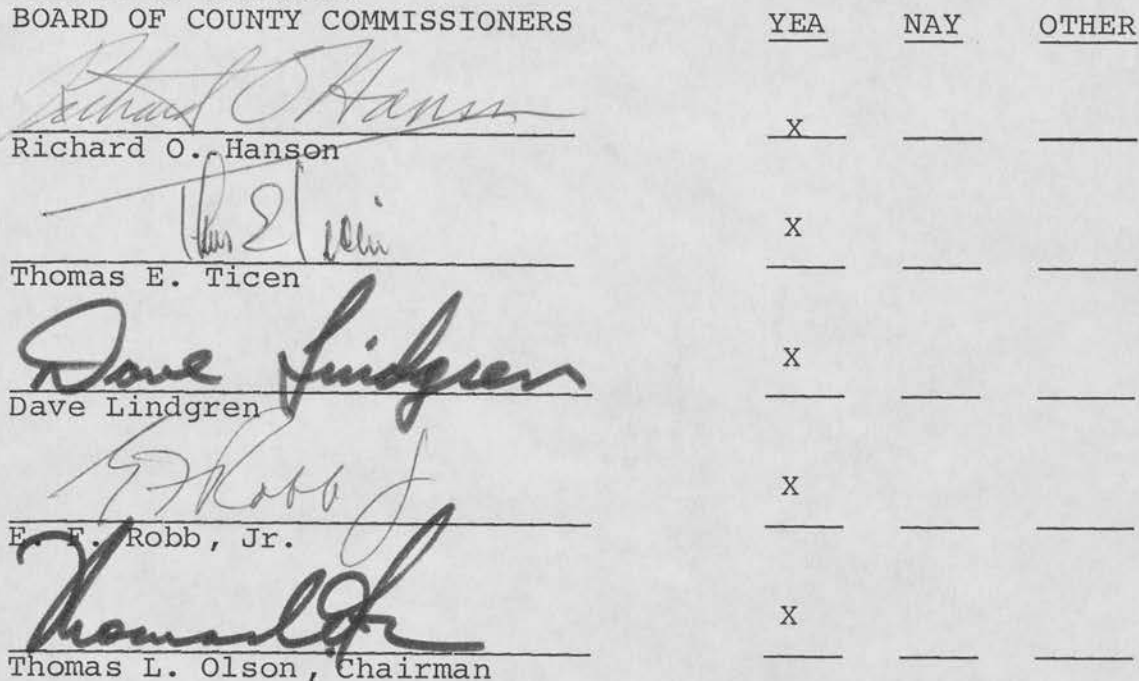 BOARD OF COUNTY COMMISSIONERS YEA NAY OTHER
Richard O Hanson
X
Richard O. Hanson
Thos E Ticen
X
Thomas E. Ticen
Dave Lindgren
X
Dave Lindgren
E F Robb Jr
X
E. F. Robb, Jr.
Thomas L
X
Thomas L. Olson, Chairman